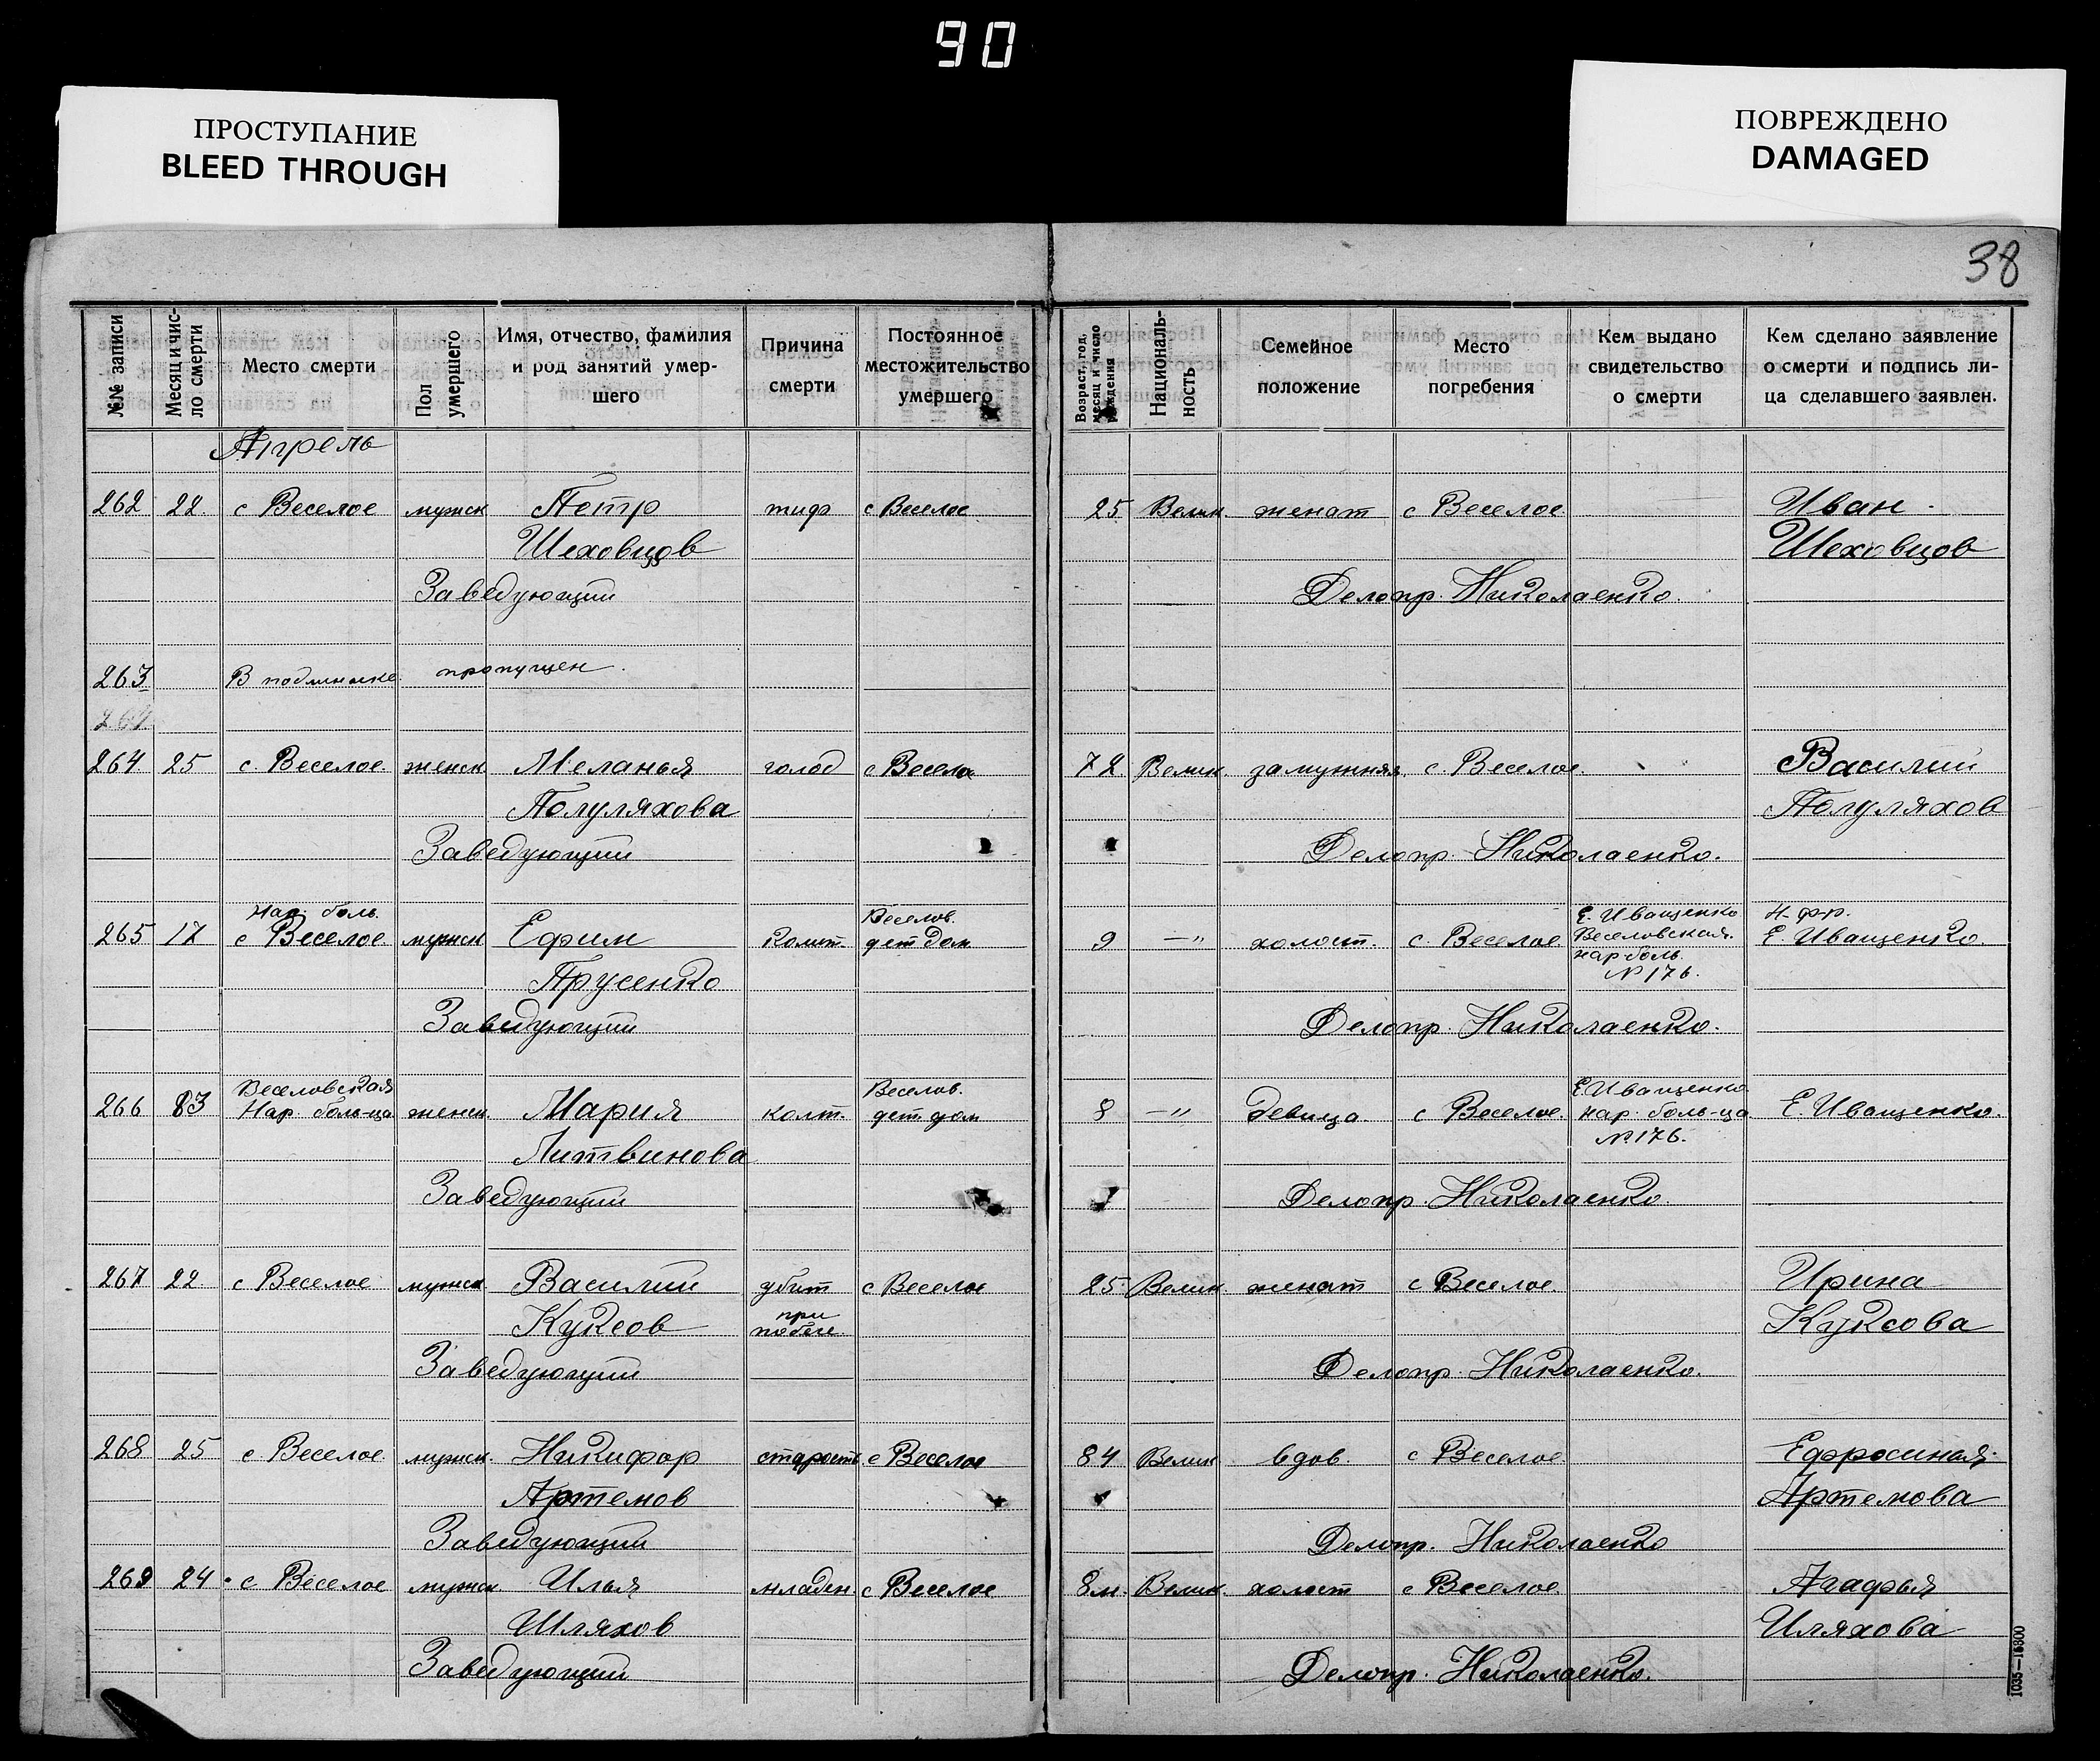 90
ПРОСТУПАНИЕ
BLEED THROUGH
ПОВРЕЖДЕНО
DAMAGED
38
№№ записи
Месяц и чис-
ло смерти
Место смерти
Пол
умершего
Имя, отчество, фамилия
и род занятий умер-
шего
Причина
смерти
Постоянное
местожительство
умершего
Возраст, год,
месяц и число
рождения
Националь-
ность
Семейное
положение
Место
погребения
Кем выдано
свидетельство
о смерти
Кем сделано заявление
о смерти и подпись ли-
ца сделавшего заявлен.
Апрель
262 22 с Веселое мужск Петр тиф с Веселое 25 Велик женат с Веселое Иван
Шеховцов Шеховцов
Заведующий Делопр. Николаенко.
263 В подлиннике пропущен.
264
264 25 с. Веселое женск Меланья голод с Весело 72 Велик замужняя с. Веселое. Василий
Полуляхова Полуляхов
Заведующий Делопр. Николаенко.
Нар. боль. Веселов. Е. Иващенко
265 17 с Веселое мужск Ефим колит. дет дом 9 —„ холост. с. Веселое Веселовская Е. Иващенко.
нар боль.
Прусенко № 176.
Заведующий Делопр. Николаенко.
Веселовская Веселов. Е. Иващенко
266 83 Нар. боль-ца женск. Мария колт. дет дом 8 —„ девица. с Веселое. нар. боль-ца Е. Иващенко.
№ 176.
Литвинова
Заведующий Делопр. Николаенко.
267 22 с Веселое мужск Василий убит с Веселое 25 Велик женат с Веселое. Ирина
Куксов при Куксова
побеге.
Заведующий Делопр. Николаенко.
268 25 с Веселое мужск. Никифор старость с Веселое 84 Велик вдов. с Веселое Ефросиная
Артемов Артемова
Заведующий Делопр. Николаенко
269 24 с Веселое мужск Илья младен с Веселое 8м. Велик холост с Веселое. Агафья
Шляхов Шляхова
Заведующий Делопр. Николаенко.
1035—15300